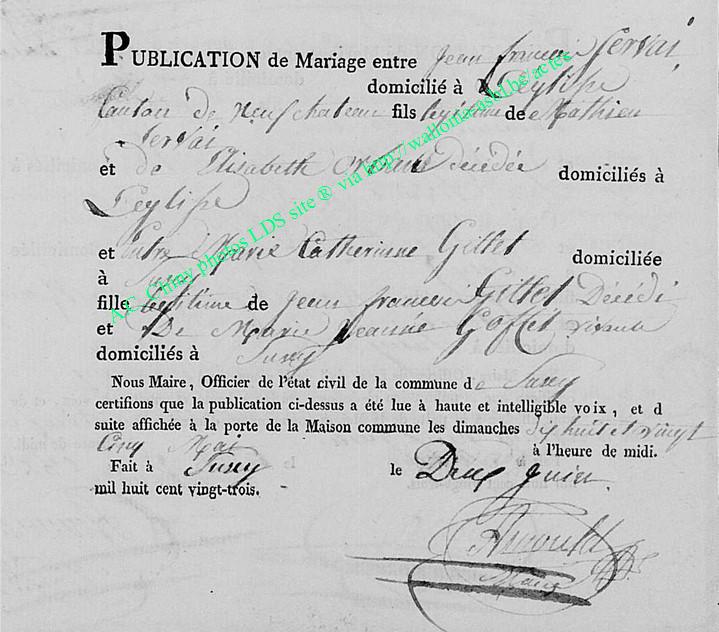 PUBLICATION de Mariage entre Jean françois Servai
domicilié à Leglise
Canton de Neufchateau fils legitime de Mathieu
Servai
et de Elisabeth décédée domiciliés à
Leglise
et Entre Marie Catherinne Gillet domiciliée
à Suxy
fille legitime de Jean françois Gillet Décédé
et De Marie Jeanne Goffet vivante
domiciliés à Suxy
Nous Maire, Officier de l'état civil de la commune de Suxy
certifions que la publication ci-dessus a été lue à haute et intelligible voix, et d
suite affichée à la porte de la Maison commune les dimanches dix huit et vingt
Cinq Mai à l'heure de midi.
Fait à Suxy le Deux juin
mil huit cent vingt-trois.
A.C. Chiny photos LDS site ® via http://wallonia-asbl.be/actes